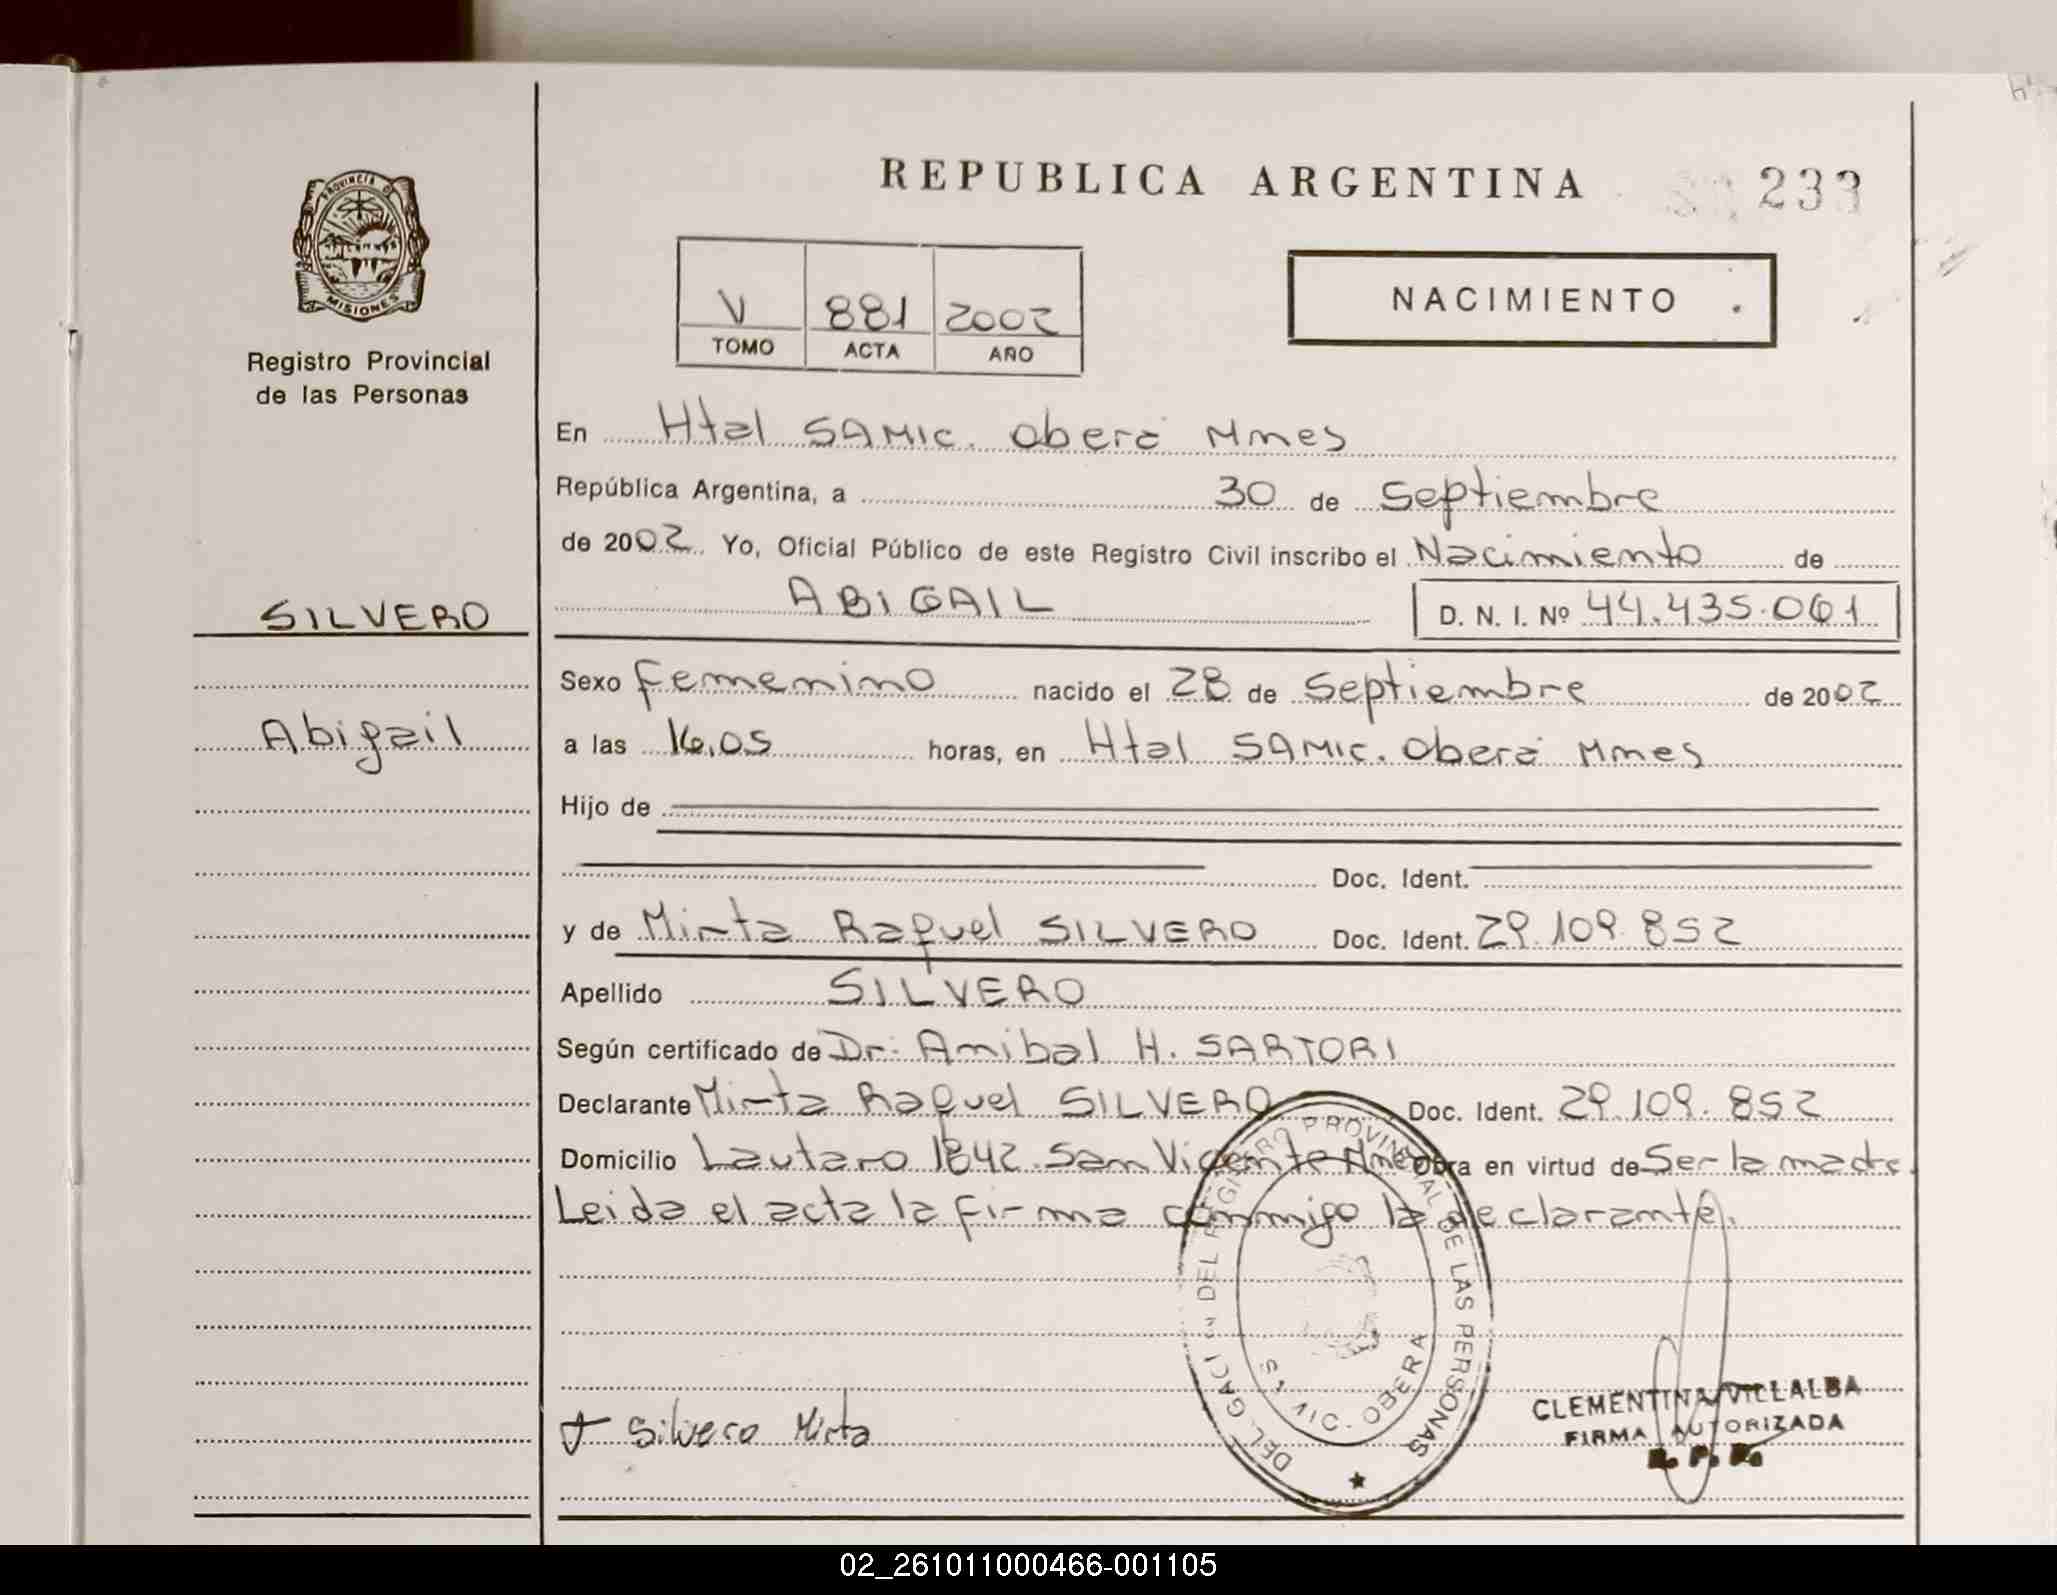 REPUBLICA ARGENTINA
233
PROVINCIA D
MISIONES
Registro Provincial
de las Personas
V 881 2002
TOMO ACTA AÑO
NACIMIENTO
En Htal SAMIC. Oberá Mnes
República Argentina, a 30 de Septiembre
de 2002 Yo, Oficial Público de este Registro Civil inscribo el Nacimiento de
SILVERO
ABIGAIL
D. N. I. Nº 44.435.061
Sexo Femenino nacido el 28 de Septiembre de 2002
Abigail
a las 16.05 horas, en Htal SAMIC. Oberá Mnes
Hijo de
Doc. Ident.
y de Mirta Raquel SILVERO Doc. Ident. 29.109.852
Apellido SILVERO
Según certificado de Dr. Anibal H. SARTORI
Declarante Mirta Raquel SILVERO Doc. Ident. 29.109.852
Domicilio Lautaro 1842. San Vicente Mnes Obra en virtud de Ser la madre
Leida el acta la firma conmigo la declarante.
DEL REGISTRO PROVINCIAL DE LAS PERSONAS
OBERA
Silvero Mirta
CLEMENTINA VILLALBA
FIRMA AUTORIZADA
R. P. P.
02_261011000466-001105